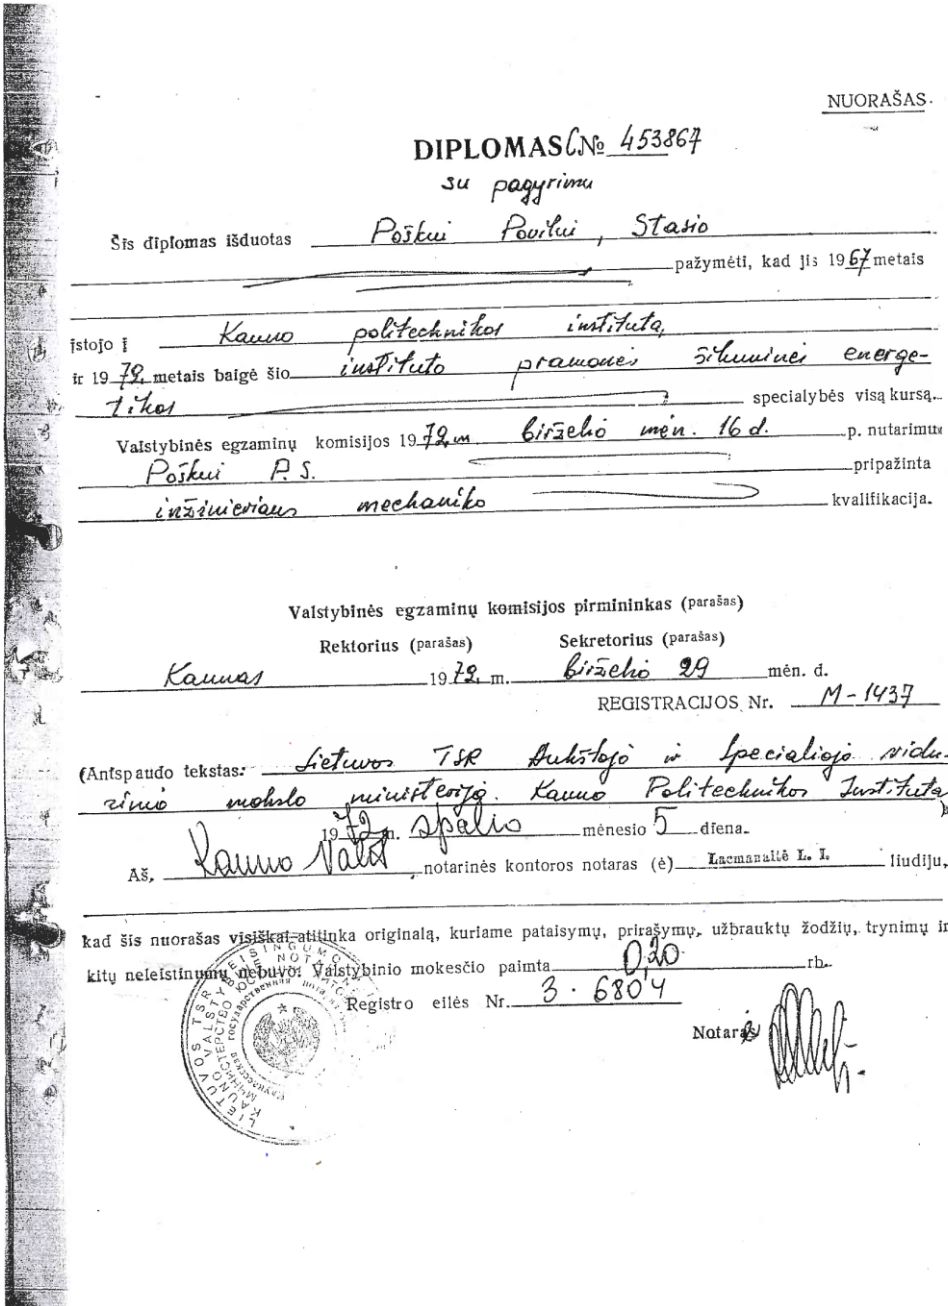 NUORAŠAS.
DIPLOMAS C№ 453867
su pagyrimu
Šis diplomas išduotas Poškui Povilui, Stasio
pažymėti, kad jis 1967 metais
įstojo į Kauno politechnikos institutą,
ir 1972 metais baigė šio instituto pramonės šiluminės energe-
tikos specialybės visą kursą.
Valstybinės egzaminų komisijos 1972 m. birželio mėn. 16 d. p. nutarimu
Poškui P. S. pripažinta
inžinieriaus mechaniko kvalifikacija.
Valstybinės egzaminų komisijos pirmininkas (parašas)
Rektorius (parašas) Sekretorius (parašas)
Kaunas 1972 m. birželio 29 mėn. d.
REGISTRACIJOS Nr. M-1437
(Antspaudo tekstas: Lietuvos TSR Aukštojo ir Specialiojo vidu-
rinio mokslo ministerija. Kauno Politechnikos Institutas)
1972 m. spalio mėnesio 5 diena.
Aš, Kauno Valst notarinės kontoros notaras (ė) Lacmanaitė L. I. liudiju,
kad šis nuorašas visiškai atitinka originalą, kuriame pataisymų, prirašymų, užbrauktų žodžių, trynimų ir
kitų neleistinumų nebuvo. Valstybinio mokesčio paimta 0,20 rb.
Registro eilės Nr. 3-6804
Notaras
LIETUVOS TSR TEISINGUMO
KAUNO VALSTYB NOTAR
МИНИСТЕРСТВО ЮС
Каунасская государственная